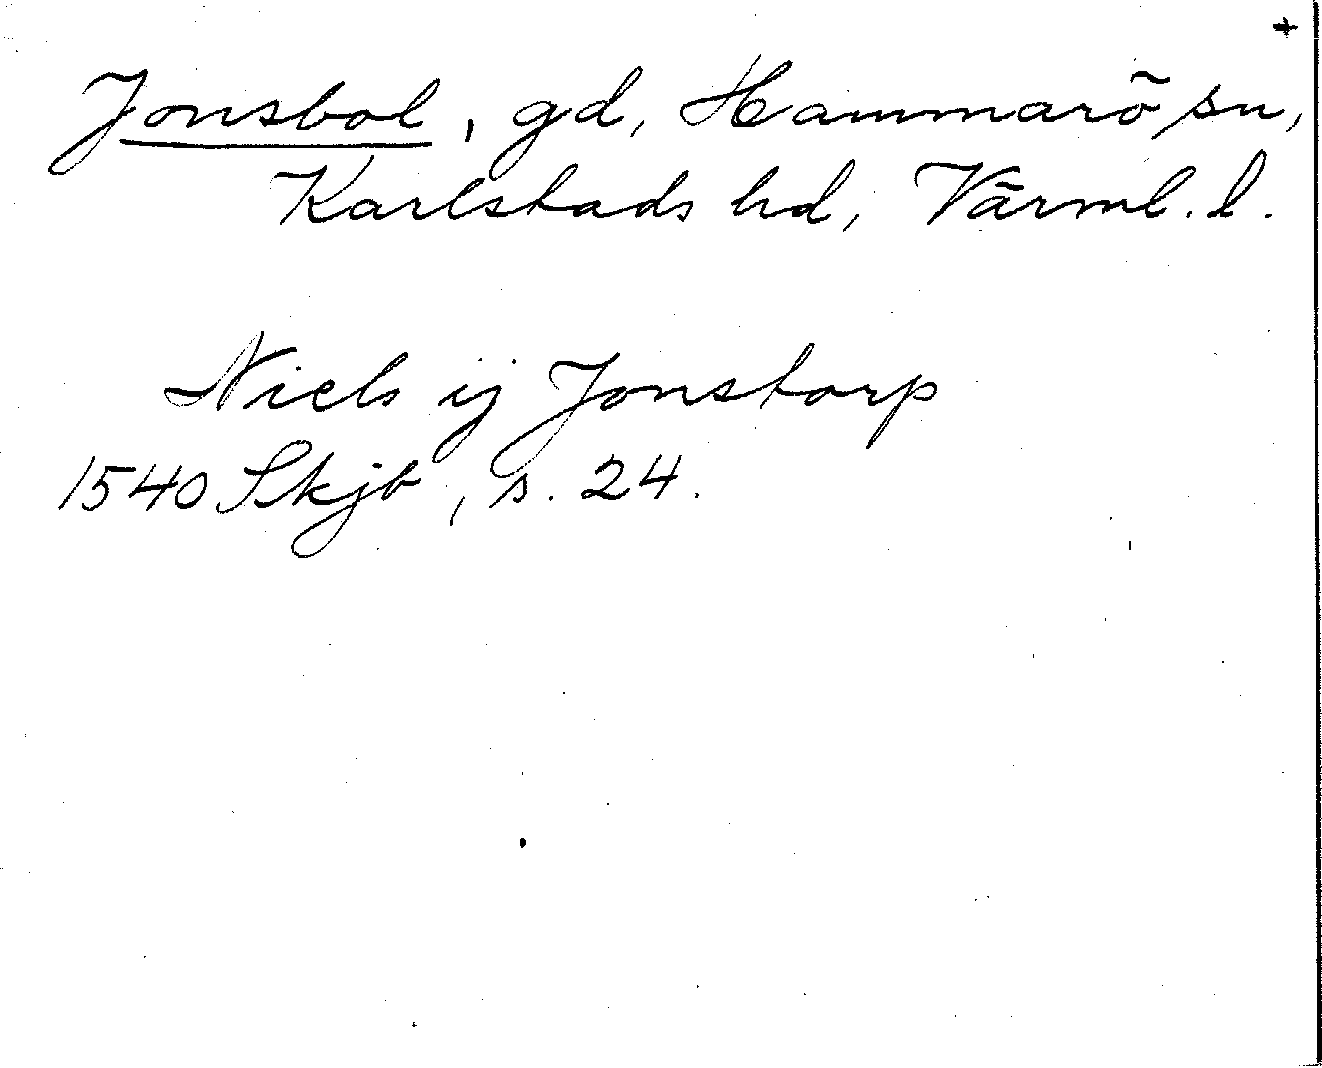 +
Jonsbol, gd, Hammarö sn,
Karlstads hd, Värml. l.
Niels ij Jonstorp
1540 Skjb, s. 24.